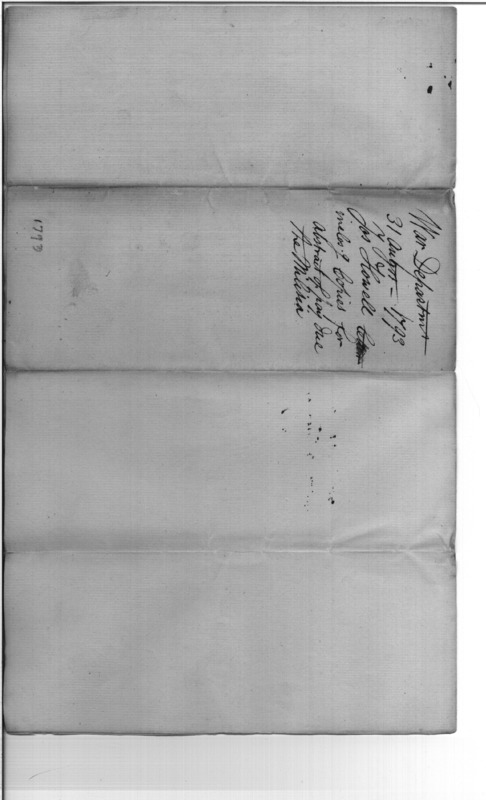 War Department
31 Augt - 1793
Jos Howell
inclos'g Copies for
abstract of pay due
the Militia
1793